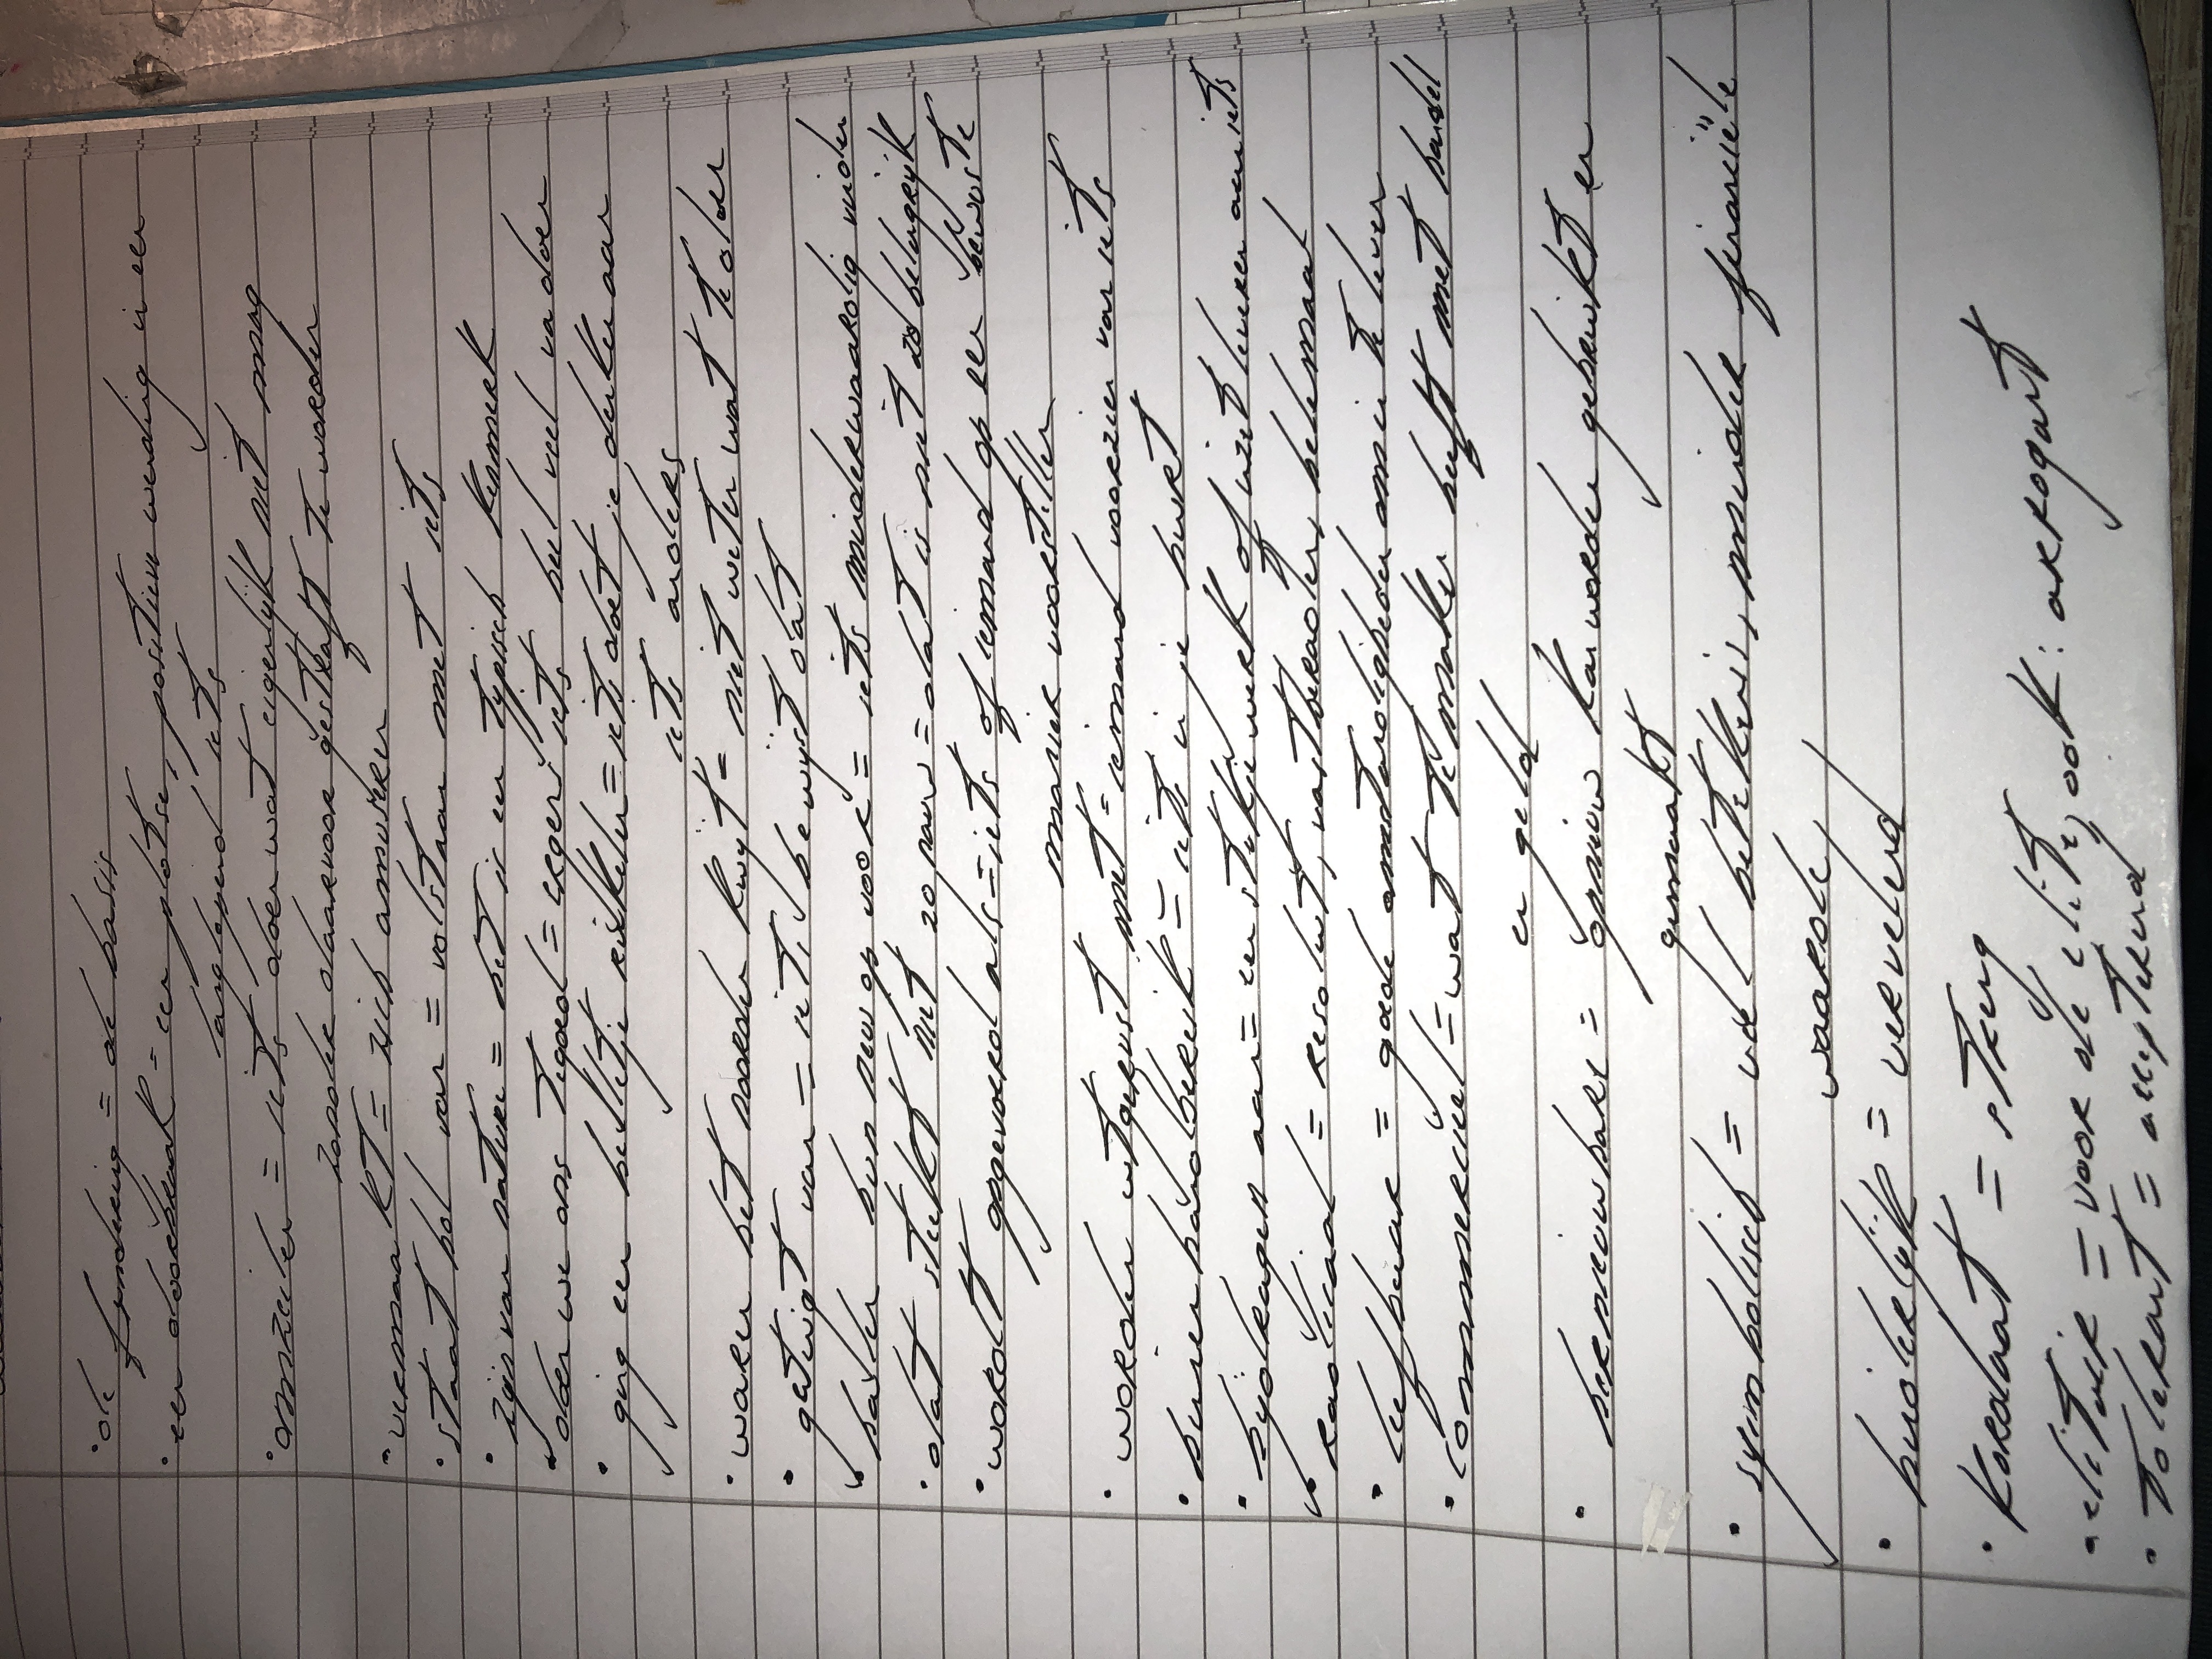 · de fundering = de basis
· een doorbraak = een plotse, positieve wending in een
langlopend iets
· omzeilen = iets doen wat eigenlijk niet mag
zonder daarvoor gestraft te worden
· vermaakt = zich amuseren
· staat bol van = volstaan met iets
· zijn van nature = het is een typisch kenmerk
· doen we ons tegoed = ergens iets heel veel va doen
· ging een belletje rinkelen = iets doet je denken aan
iets anders
· waren het noorden kwijt = niet weten wat te doen
· getuigt van = iets bewijst dat
· halen hun neus op voor = iets minderwaardig vinden
· dat steekt niet zo nauw = dat is niet zo belangrijk
· wordt opgevoerd als = iets of iemand op een bewuste
manier voorstellen
· worden uitgerust met = iemand voorzien van iets
· binnen handbereik = iets in je buurt
· bijdragen aan = een stukje werk of inzet leveren aan iets
· radicaal = resoluut, vastberaden, helemaal
· leefbaar = goede omstandigheden om in te leven
· commercieel = wat te maken heeft met handel
en geld
· hernieuwbare = opnieuw kan worden gebruikt en
gemaakt
· symbolisch = veel betekenis, minder financiële
waarde
· hinderlijk = vervelend
· Kordaat = streng
· elitair = voor de elite, ook: arrogant
· Tolerant = accepterend